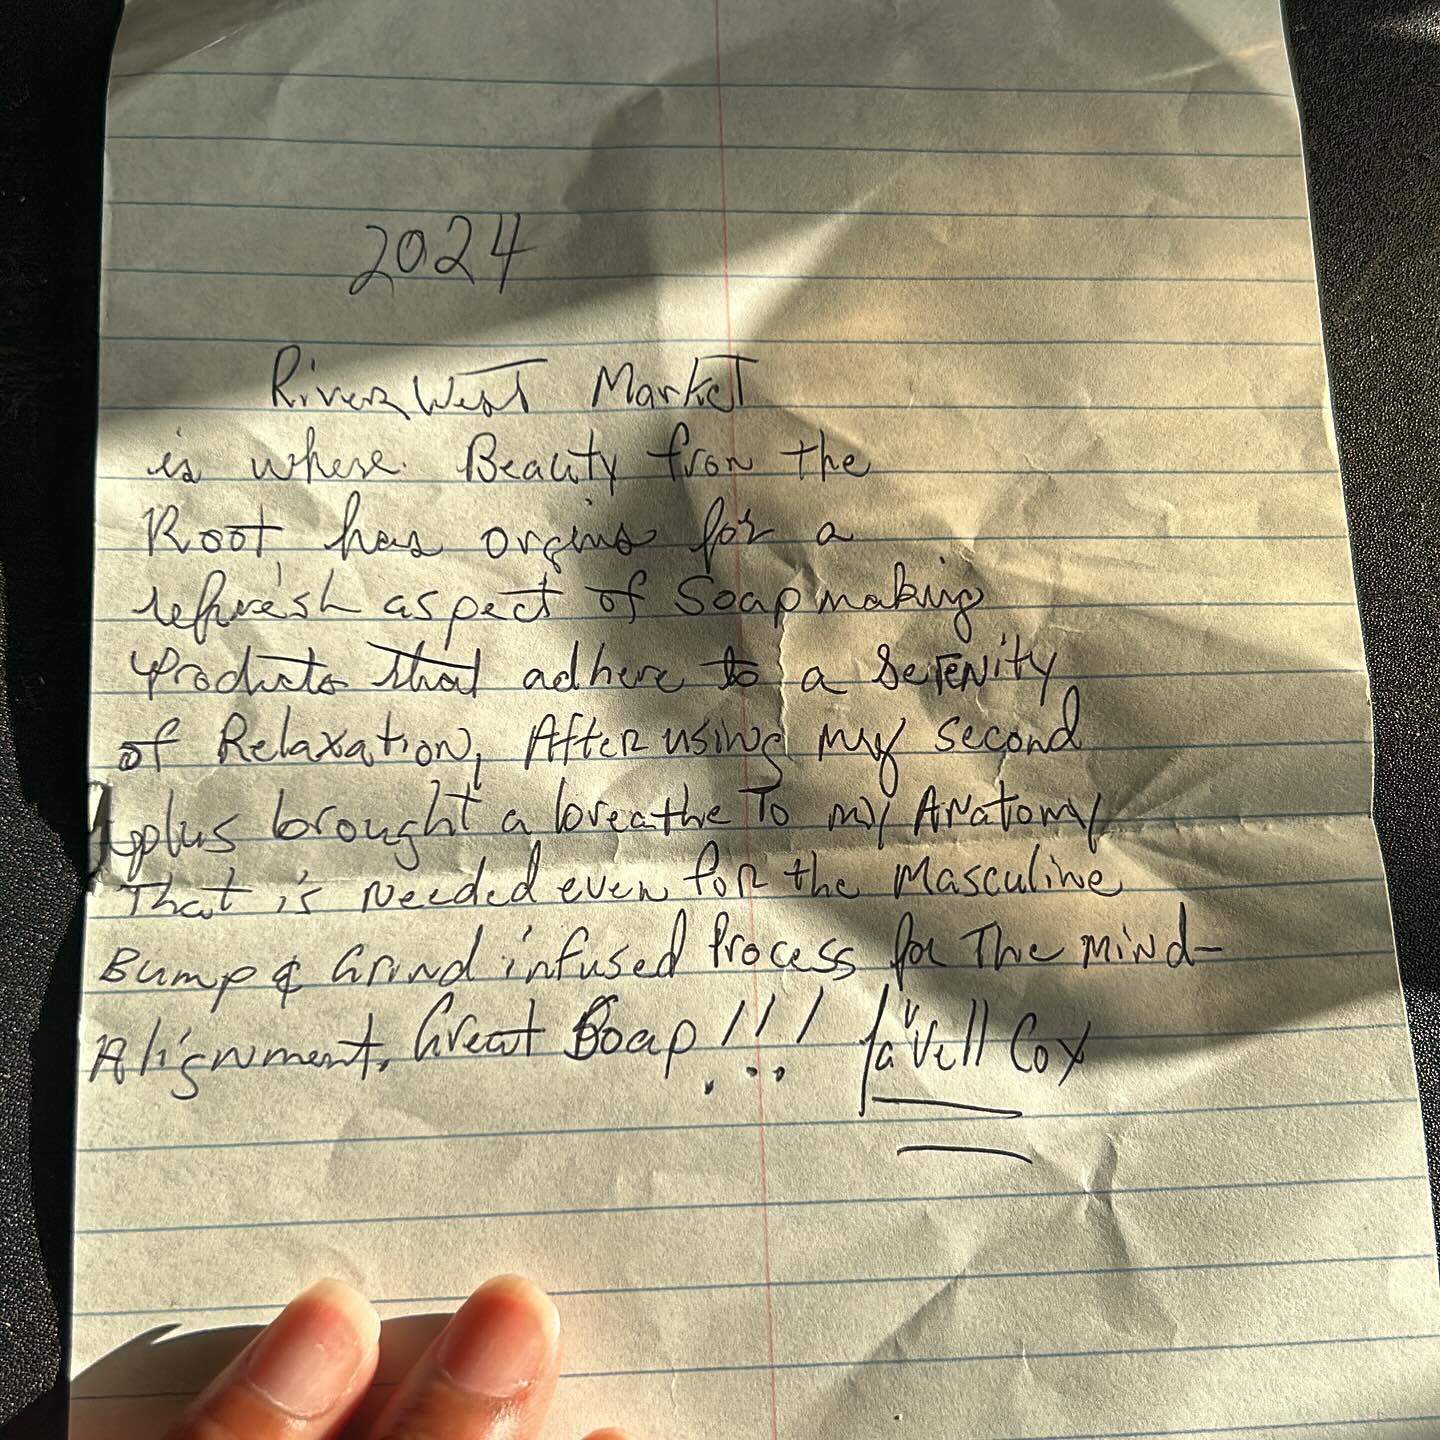 2024
RiverWest Market
is where Beauty from the
Root has orgins for a
refresh aspect of Soapmaking
products that adhere to a Serenity
of Relaxation, After using my second
plus brought a breathe To my Anatomy
That is Needed even for the Masculine
Bump & Grind infused Process for The Mind-
Alignment. Great Soap!!! La'Vell Cox